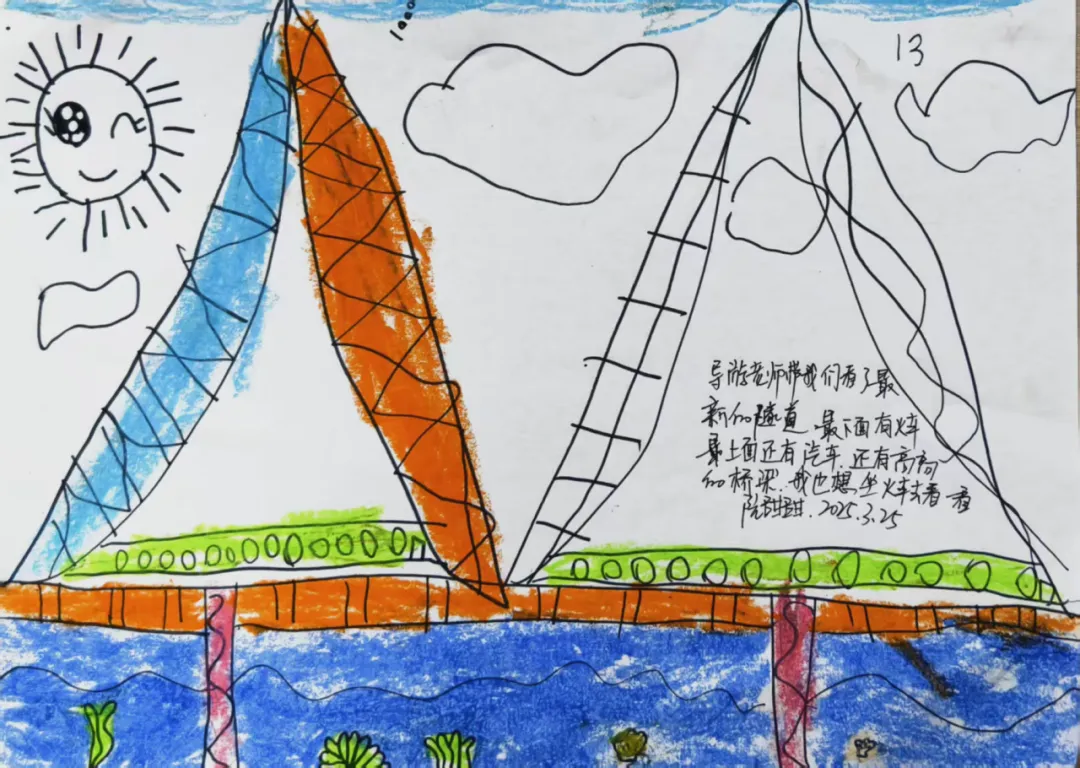 13
导游老师带我们看了最
新的隧道.最下面有火车
最上面还有汽车.还有高高
的桥梁.我也想坐火车去看看
阮甜甜.2025.3.25